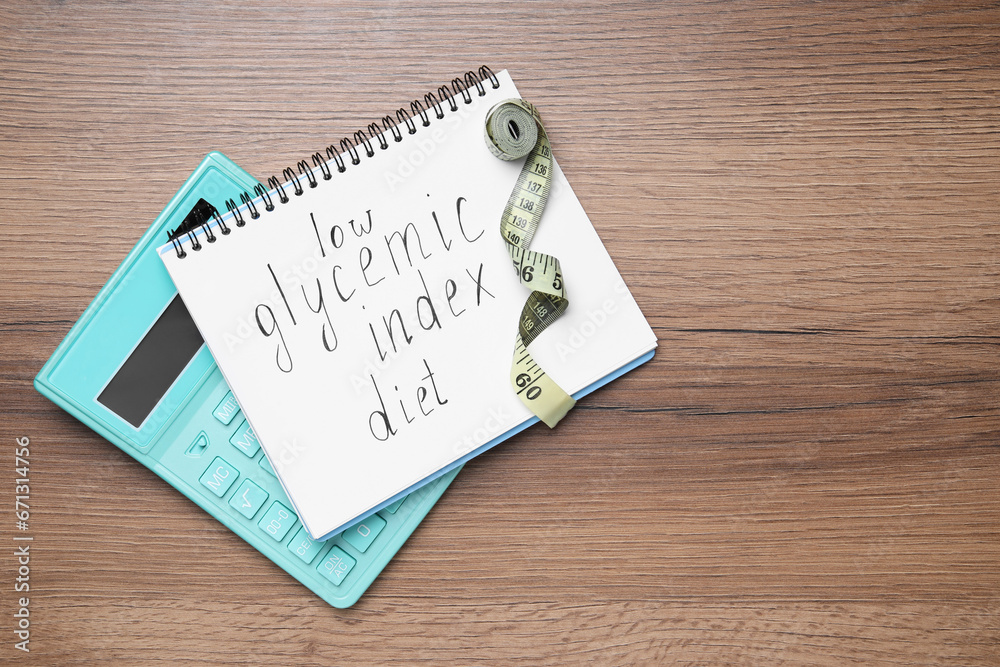 low
glycemic
index
diet
136
137
138
139
140
6 5
148
149
60
MC
√
00→0
0
ON/AC
Adobe Stock | #671314756